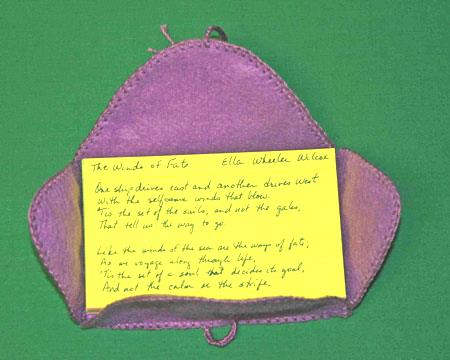 The Winds of Fate Ella Wheeler Wilcox
One ship drives east and another drives West
With the selfsame winds that blow.
'Tis the set of the sails, and not the gales,
That tell us the way to go.
Like the winds of the sea are the ways of fate,
As we voyage along through life,
'Tis the set of a soul that decides its goal,
And not the calm or the strife.